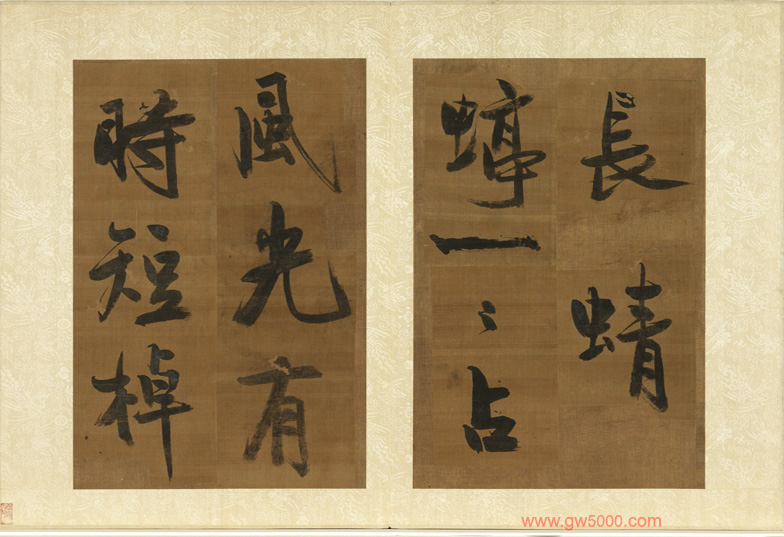 長蜻
蜓一〻占
風光有
時短棹
www.gw5000.com